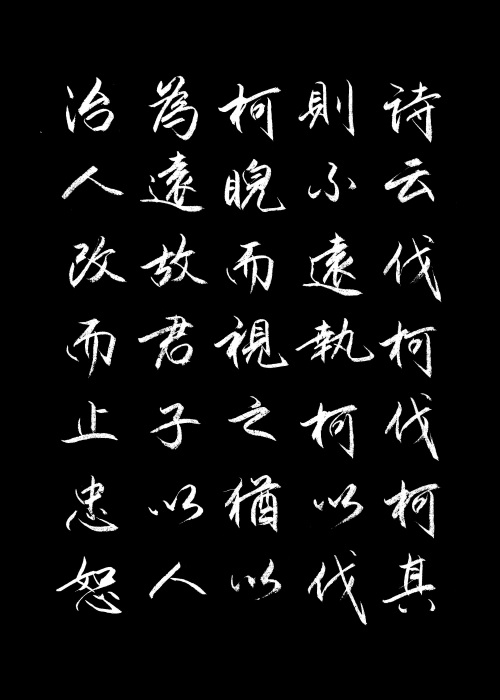 詩云伐柯伐柯其
則不遠執柯以伐
柯睨而視之猶以
為遠故君子以人
治人改而止忠恕